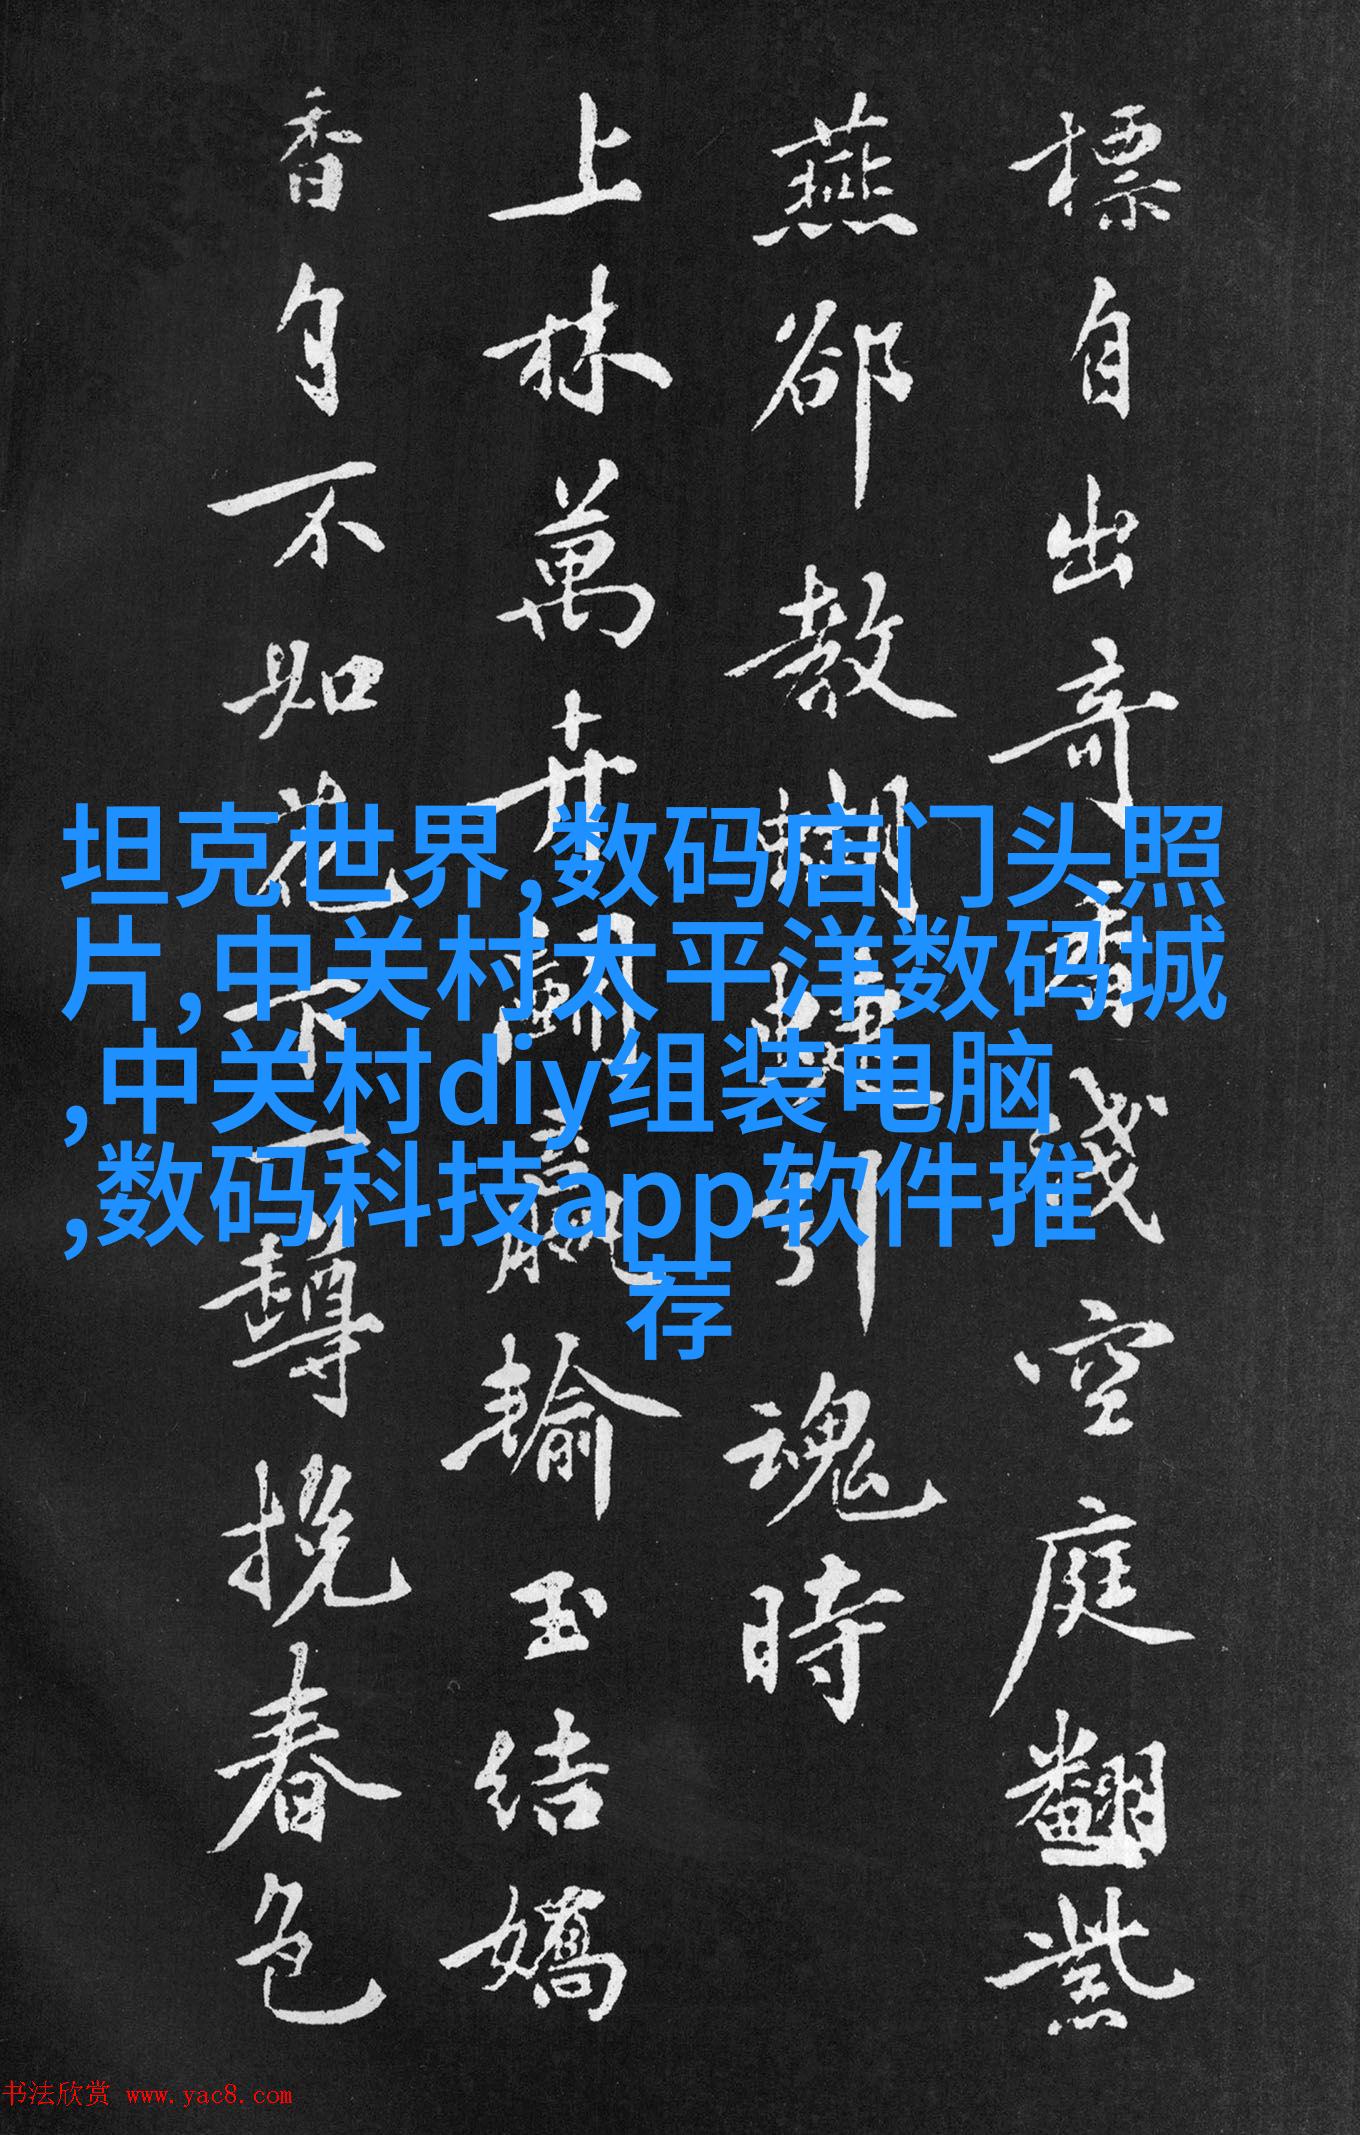 標自出奇空庭翻紫
燕卻教蝴蝶引魂時
上林萬卉鬭贏輸玉結嬌
香不如花下一樽挽春色
坦克世界,数码店门头照
片,中关村太平洋数码城
,中关村diy组装电脑
,数码科技app软件推
荐
书法欣赏 www.yac8.com